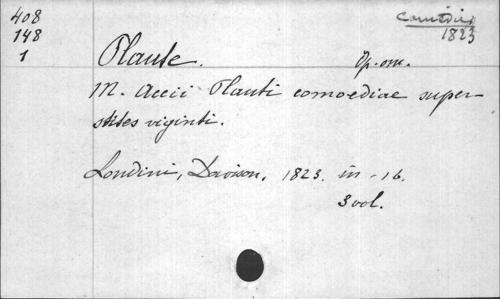 408
148
1
comédie
1823
Plaute. Op. om.
M. Accii Plauti comoediae super-
stites viginti.
Londini, Davison. 1823. in-16.
3 vol.